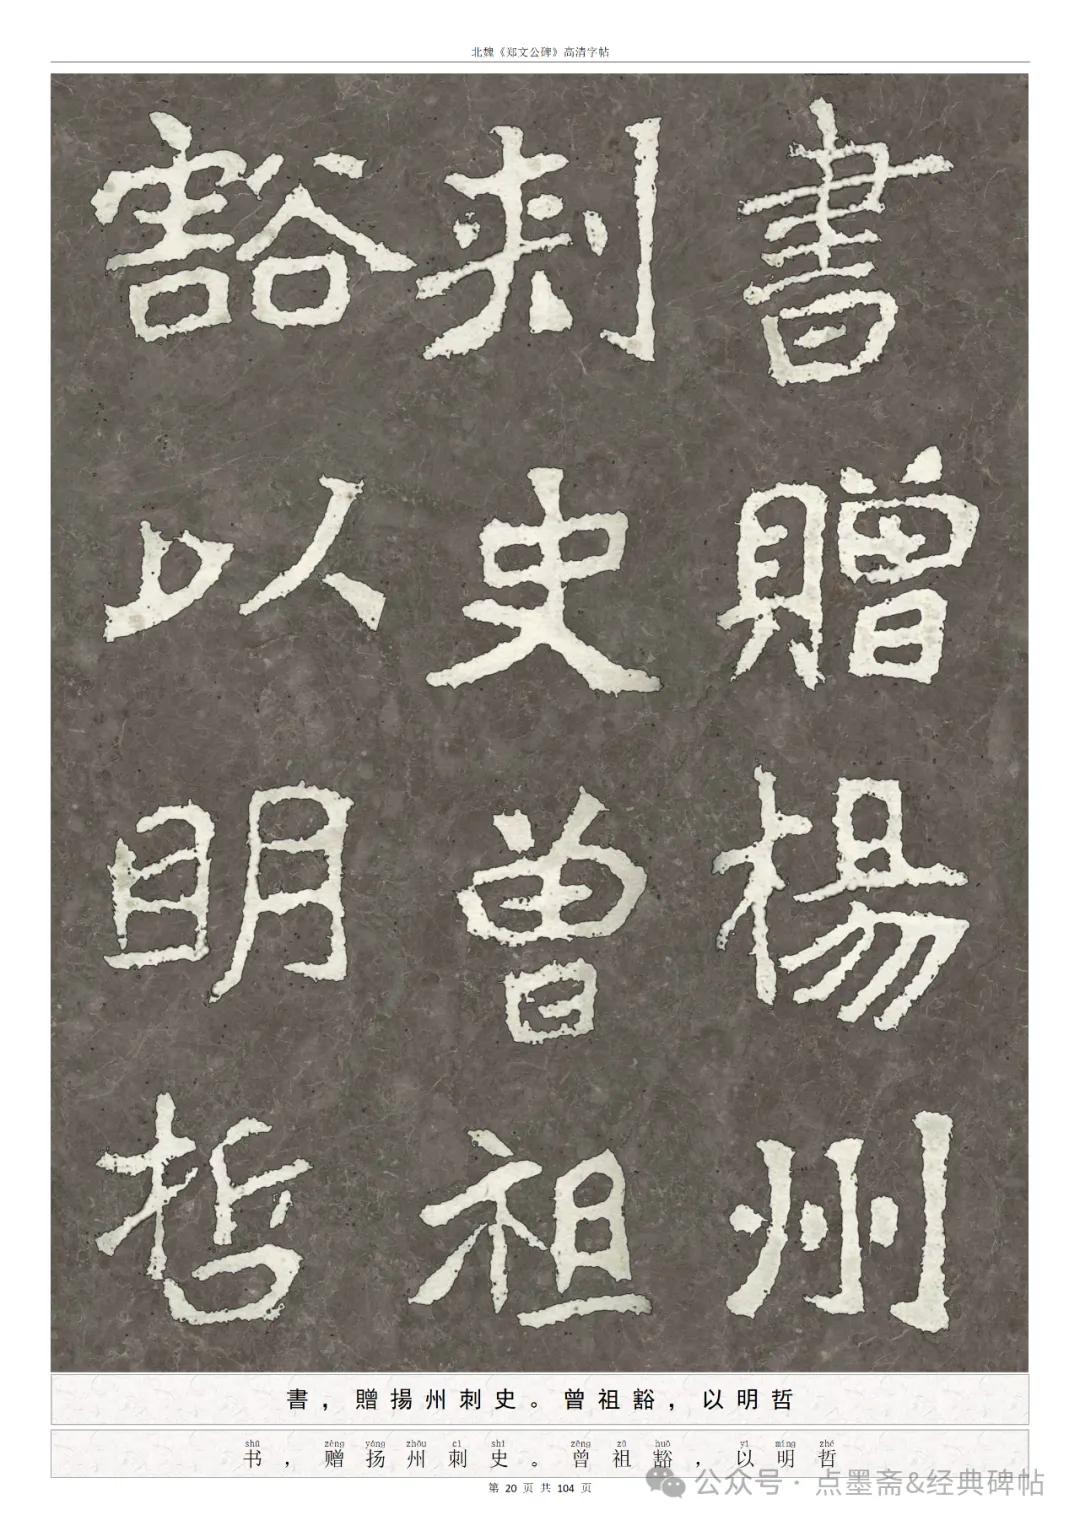 北魏《郑文公碑》高清字帖
書贈楊州
刺史曾祖
豁以明哲
書，贈揚州刺史。曾祖豁，以明哲
shū zèng yáng zhōu cì shǐ zēng zǔ huò yǐ míng zhé
书，赠扬州刺史。曾祖豁，以明哲
第 20 页 共 104 页
公众号·点墨斋&经典碑帖